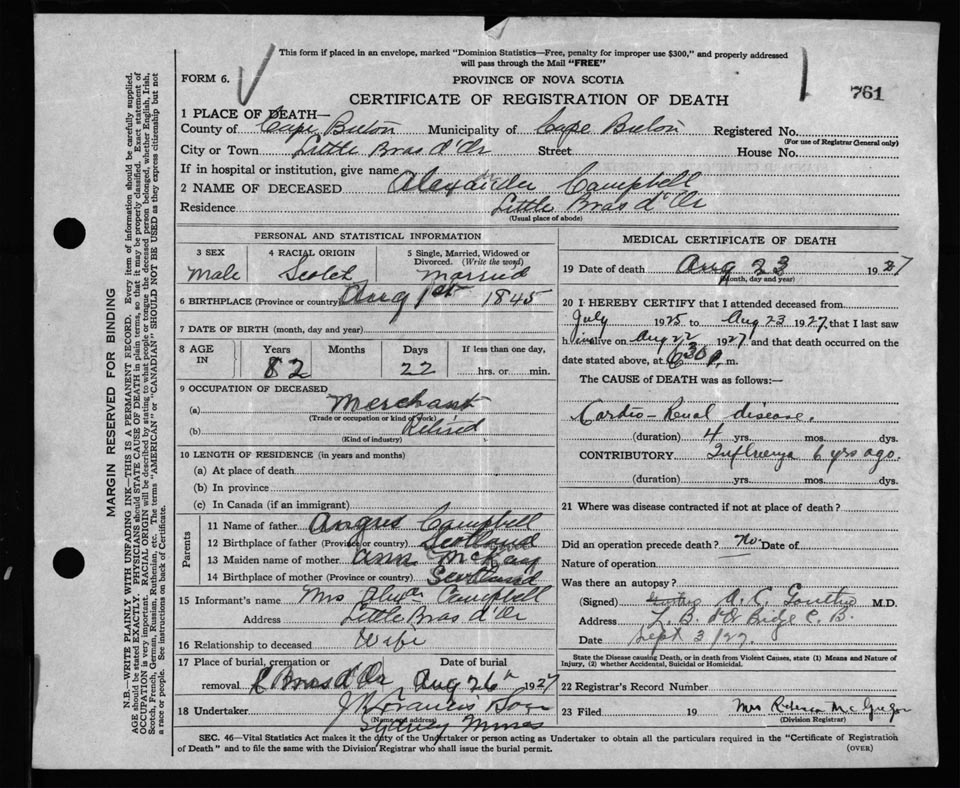 This form if placed in an envelope, marked "Dominion Statistics—Free, penalty for improper use $300," and properly addressed
will pass through the Mail "FREE"
FORM 6.
PROVINCE OF NOVA SCOTIA
761
CERTIFICATE OF REGISTRATION OF DEATH
1 PLACE OF DEATH—
County of Cape Breton Municipality of Cape Breton Registered No.
(For use of Registrar General only)
City or Town Little Bras d'Or Street House No.
If in hospital or institution, give name
2 NAME OF DECEASED Alexander Campbell
Residence Little Bras d'Or
(Usual place of abode)
PERSONAL AND STATISTICAL INFORMATION
3 SEX 4 RACIAL ORIGIN 5 Single, Married, Widowed or
Divorced. (Write the word)
Male Scotch Married
6 BIRTHPLACE (Province or country) Aug 1st 1845
7 DATE OF BIRTH (month, day and year)
8 AGE IN Years Months Days If less than one day,
82 22 hrs. or min.
9 OCCUPATION OF DECEASED
(a) Merchant
(Trade or occupation or kind of work)
(b) Retired
(Kind of industry)
10 LENGTH OF RESIDENCE (in years and months)
(a) At place of death
(b) In province
(c) In Canada (if an immigrant)
Parents
11 Name of father Angus Campbell
12 Birthplace of father (Province or country) Scotland
13 Maiden name of mother Ann McKay
14 Birthplace of mother (Province or country) Scotland
15 Informant's name Mrs Alexr Campbell
Address Little Bras d'Or
16 Relationship to deceased Wife
17 Place of burial, cremation or Date of burial
removal L Bras d'Or Aug 26th 1927
18 Undertaker
(Name and address)
Sydney Mines
MEDICAL CERTIFICATE OF DEATH
19 Date of death Aug 23 1927
(Month, day and year)
20 I HEREBY CERTIFY that I attended deceased from
July 1925 to Aug 23 1927, that I last saw
him alive on Aug 22 1927 and that death occurred on the
date stated above, at 630 P. m.
The CAUSE OF DEATH was as follows:—
Cardio-Renal disease.
(duration) 4 yrs. mos. dys.
CONTRIBUTORY Influenza 6 yrs ago.
(duration) yrs. mos. dys.
21 Where was disease contracted if not at place of death?
Did an operation precede death? No Date of
Nature of operation
Was there an autopsy?
(Signed) A. C. M.D.
Address L. B. d'Or Bridge C. B.
Date Sept 3/27
State the Disease causing Death, or in death from Violent Causes, state (1) Means and Nature of
Injury, (2) whether Accidental, Suicidal or Homicidal.
22 Registrar's Record Number
23 Filed 19 Mrs Rebecca McGregor
(Division Registrar)
SEC. 46—Vital Statistics Act makes it the duty of the Undertaker or person acting as Undertaker to obtain all the particulars required in the "Certificate of Registration
of Death" and to file the same with the Division Registrar who shall issue the burial permit.
(OVER)
MARGIN RESERVED FOR BINDING
N.B.—WRITE PLAINLY WITH UNFADING INK—THIS IS A PERMANENT RECORD. Every item of information should be carefully supplied.
AGE should be stated EXACTLY. PHYSICIANS should STATE CAUSE OF DEATH in plain terms, so that it may be properly classified. Exact statement of
OCCUPATION is very important. RACIAL ORIGIN will be described by stating to what people or tongue the deceased person belonged, whether English, Irish,
Scotch, French, German, Russian, Ruthenian, etc. The terms "AMERICAN" or "CANADIAN" SHOULD NOT BE USED as they express citizenship but not
a race or people. See instructions on back of Certificate.